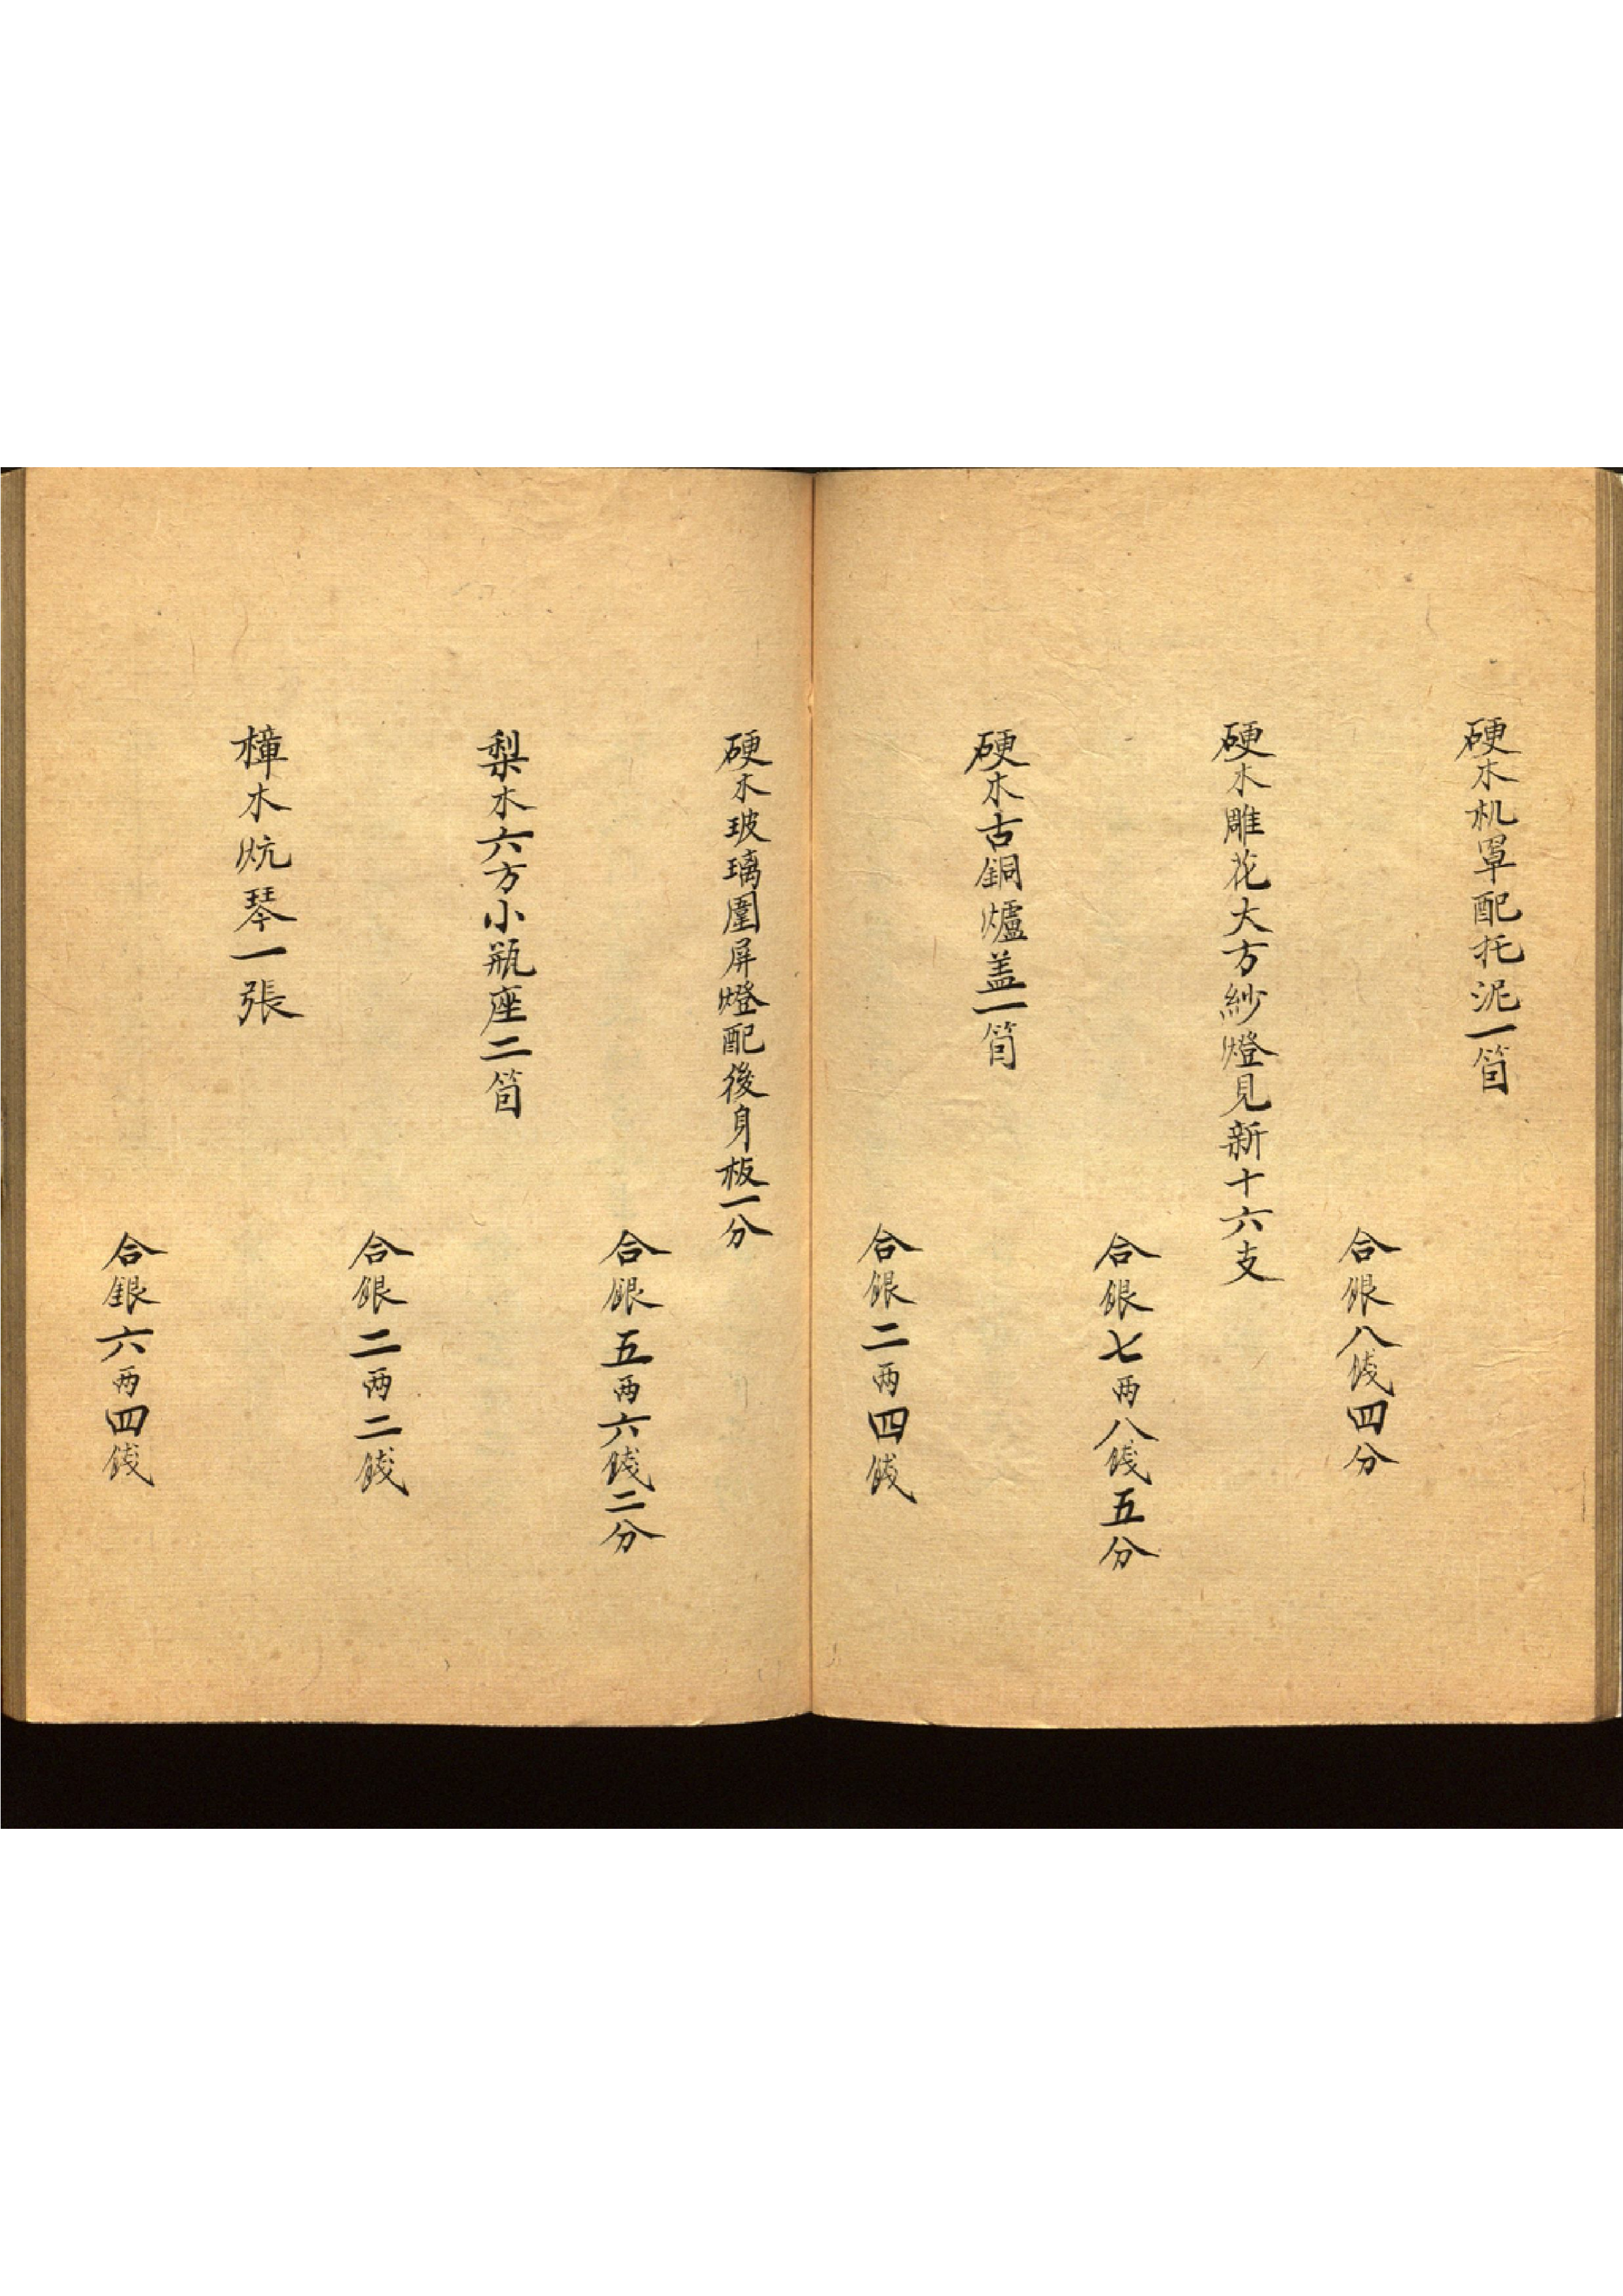 硬木机罩配托泥一箇
合銀八錢四分
硬木雕花大方紗燈見新十六支
合銀七两八錢五分
硬木古銅爐盖一箇
合銀二两四錢
硬木玻璃圍屏燈配後身板一分
合銀五两六錢二分
梨木六方小瓶座二箇
合銀二两二錢
樟木炕琴一張
合銀六两四錢